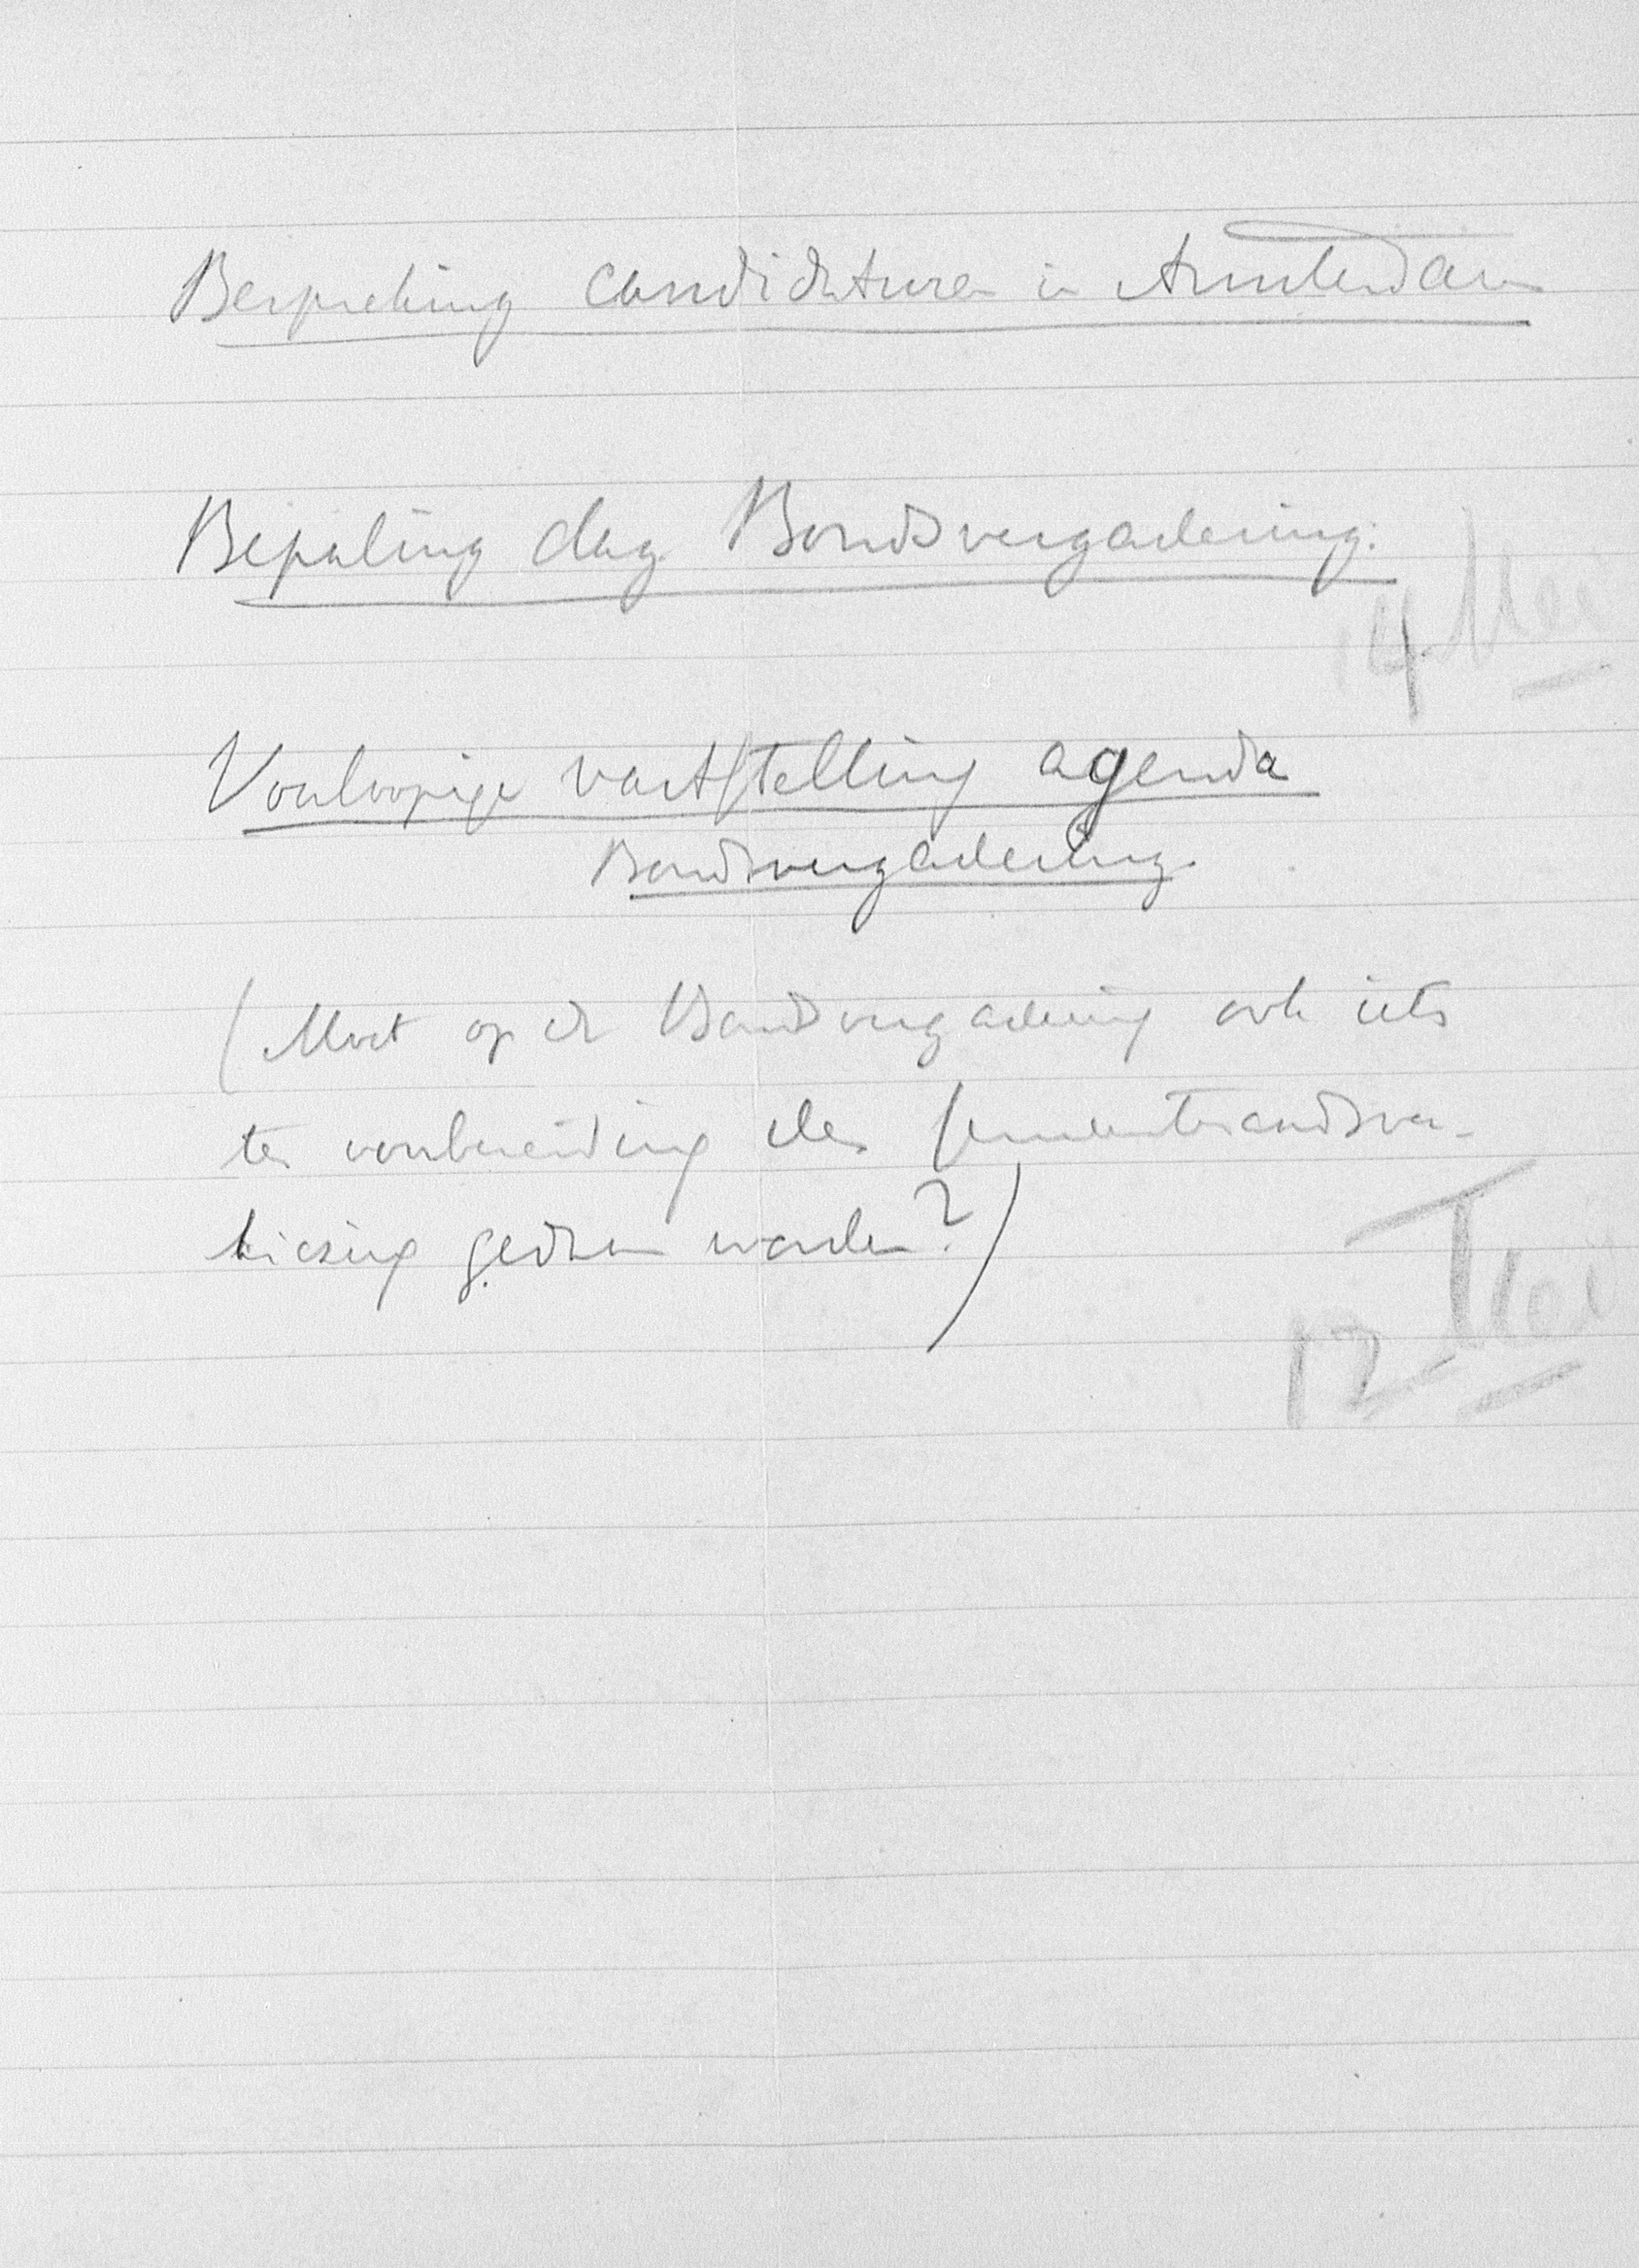 Bespreking candidaturen in Amsterdam
Bepaling dag Bondsvergadering.
14 Mei
Voorloopige vaststelling agenda
Bondsvergadering.
(Moet op de Bondsvergadering ook iets
ter voorbereiding der Gemeenteraadsver-
kiezing gedaan worden?)
12 Mei